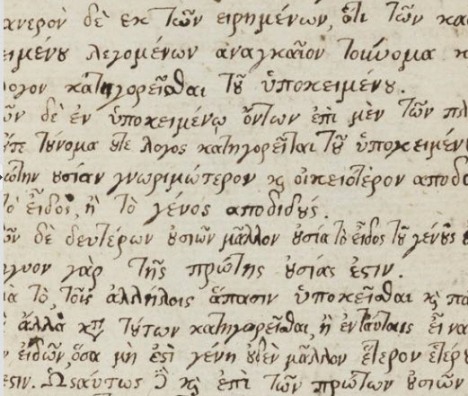 ανερὸν δὲ ἐκ τῶν ειρημένων, ὅτι τῶν κα
ειμένου λεγομένων αναγκαῖον τοὔνομα κ
λογον κατηγορεῖσθαι τοῦ ὑποκειμένου.
ῶν δὲ ἐν ὑποκειμένῳ ὄντων ἐπὶ μὲν τῶν πλ
ὔτε τοὔνομα οὔτε λογος κατηγορεῖται τοῦ ὑποκειμέν
ώτην ουσίαν γνωριμώτερον κ οικειοτερον αποδ
τὸ εἶδος, ἢ τὸ γένος αποδιδούς.
ῶν δὲ δευτέρων ουσιῶν μᾶλλον ουσία τὸ εἶδος τοῦ γένους
γγιον γὰρ τῆς πρώτης ουσίας ἐστιν.
ιὰ τὸ τοῖς ἀλλήλοις ἅπασιν ὑποκεῖσθαι κ π
ἄλλα κτ τούτων κατηγορεῖσθαι, ἢ ἐν ταύταις εἶνα
ν εἰδῶν, ὅσα μὴ ἐστὶ γένη οὐδὲν μᾶλλον ἕτερον ἑτέρ
εστιν. Ωσαύτως δ κ ἐπὶ τῶν πρώτων ουσιῶν